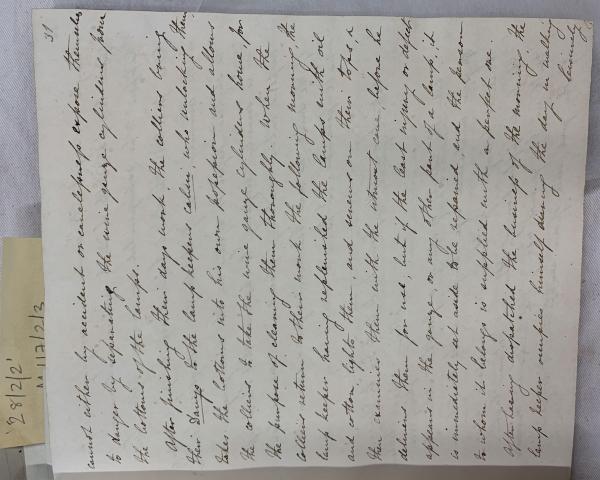 31
cannot either by accident or carelessness expose themselves
to danger by separating the wire gauze cylinders from
the bottoms of the lamps.
After finishing their days work the colliers bring
their Davys to the lamp keepers cabin who unlocking them
takes the bottoms into his own possession and allows
the colliers to take the wire gauze cylinders home, for
the purpose of cleaning them thoroughly. When the
colliers return to their work the following morning the
lamp keeper having replenished the lamps with oil
and cotton, lights them, and screws on their tops &
then examines them with the utmost care, before he
delivers them for use, but if the least injury or defect
appears in the gauze, or any other part of a lamp, it
is immediately set aside to be repaired, and the person
to whom it belongs is supplied with a perfect one.
After having dispatched the business of the morning, the
lamp keeper occupies himself during the day in
'28/2/2'